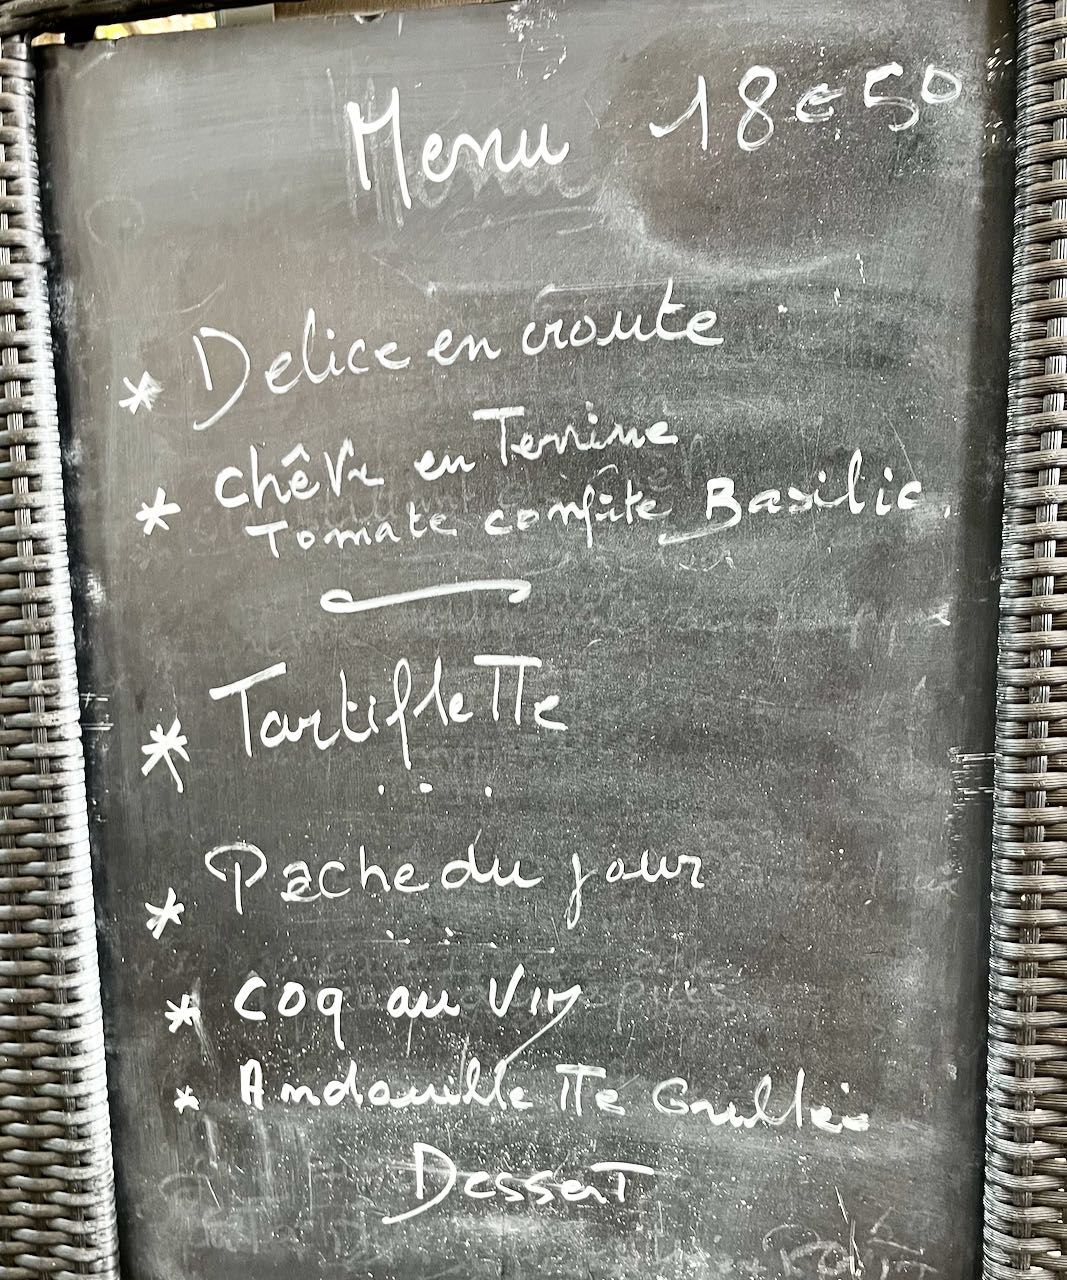 Menu 18€50
* Delice en croute
* chêvre en Terrine
Tomate confite Basilic.
* Tartiflette
* Pêche du jour
* Coq au Vin
* Andouillette Grillée
Dessert